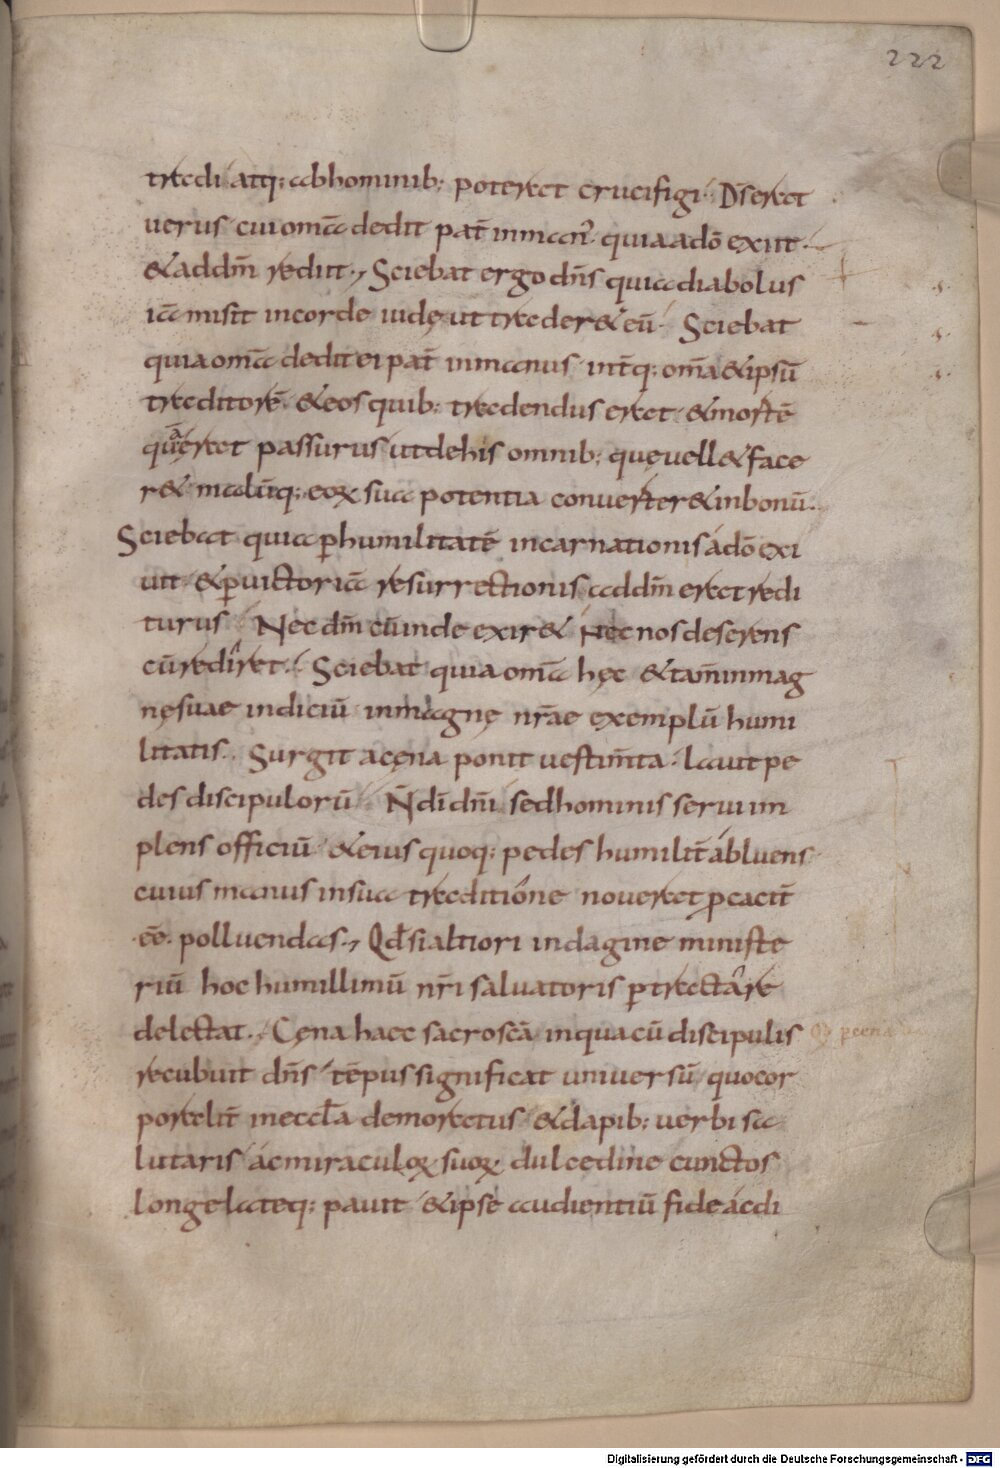 222
tradi atq; abhominib; poterat crucifigi. Ds̄ erat
uerus cui om̄a dedit pat̄ inman̄. quia adō exiit.
&addm̄ rediit., Sciebat ergo dn̄s quia diabolus
iā misit incorde iudę ut trader& eū. Sciebat
quia om̄a dedit ei pat̄ inmanus int̄q; om̄a &ipsū
traditorē. &eos quib; tradendus erat &mortē
quā erat passurus utdehis omnib; quę uell& face
r& malūq; eoꝝ sua potentia conuerter& inbonū.
Sciebat quia ꝑhumilitatē incarnationis adō exi
uit &ꝑuictoriā resurrectionis addm̄ erat redi
turus. Nec dm̄ cū inde exir& Nec nos deserens
cū rediret. Sciebat quia om̄a hęc &tam̄ inmag
nę suae indiciū inmagnę nr̄ae exemplū humi
litatis. Surgit acęna ponit uestim̄ta. lauit pe
des discipulorū. N̄ dī dn̄i sed hominis serui im
plens officiū &eius quoq; pedes humilit̄ abluens
cuius manus insua traditione nouerat ꝑcacit̄
eē. polluendas., Qd̄ si altiori indagine ministe
riū hoc humillimū nr̄i saluatoris ꝑtractare
delectat., Cęna haec sacroscā inqua cū discipulis
recubuit dn̄s tēpus significat uniuersū quo cor
poralit̄ ineccl̄a demoratus &dapib; uerbi sa
lutaris ac miraculoꝝ suoꝝ dulcedine cunctos
longe lateq; pauit &ipse audientiū fide ac di
Digitalisierung gefördert durch die Deutsche Forschungsgemeinschaft - DFG